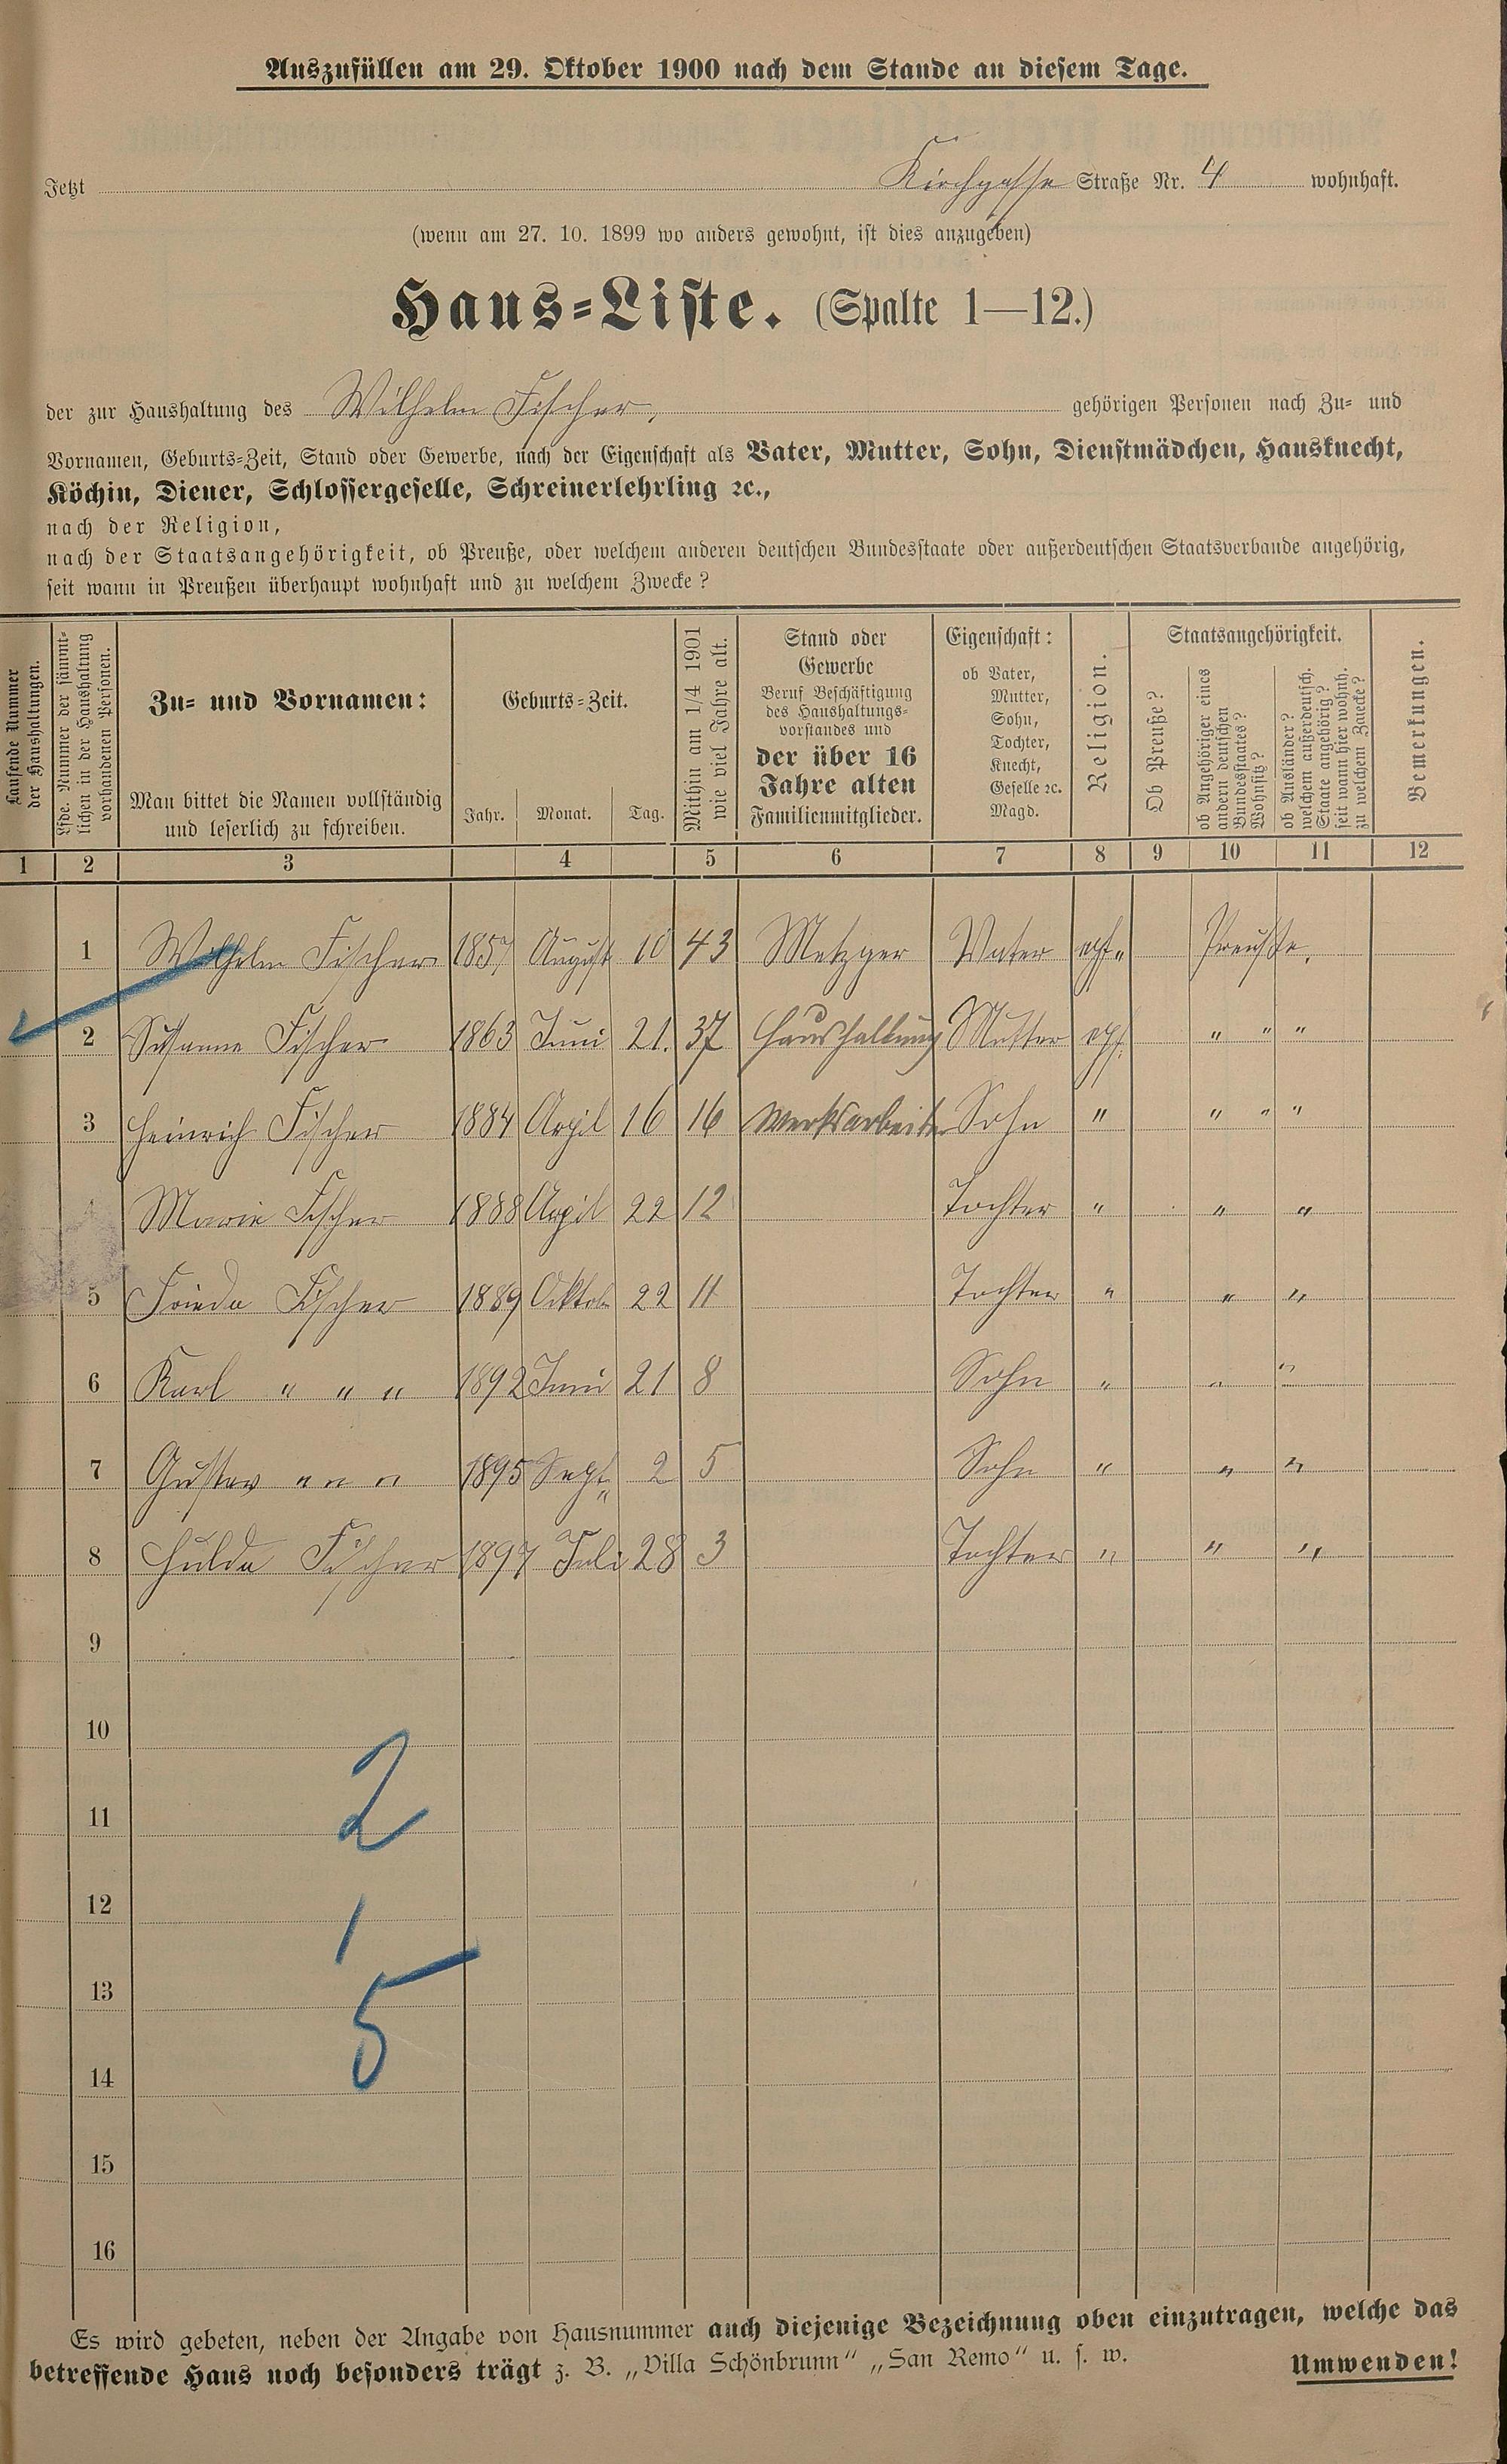 Auszufüllen am 29. Oktober 1900 nach dem Stande an diesem Tage.
Jetzt Kirchgasse Straße Nr. 4 wohnhaft.
(wenn am 27. 10. 1899 wo anders gewohnt, ist dies anzugeben)
Haus-Liste. (Spalte 1—12.)
der zur Haushaltung des Wilhelm Fischer, gehörigen Personen nach Zu- und
Vornamen, Geburts-Zeit, Stand oder Gewerbe, nach der Eigenschaft als Vater, Mutter, Sohn, Dienstmädchen, Hausknecht,
Köchin, Diener, Schlossergeselle, Schreinerlehrling ꝛc.,
nach der Religion,
nach der Staatsangehörigkeit, ob Preuße, oder welchem anderen deutschen Bundesstaate oder außerdeutschen Staatsverbande angehörig,
seit wann in Preußen überhaupt wohnhaft und zu welchem Zwecke?
Laufende Nummer
der Haushaltungen.
Lfde. Nummer der sämmt-
lichen in der Haushaltung
vorhandenen Personen.
Zu- und Vornamen:
Man bittet die Namen vollständig
und leserlich zu schreiben.
Geburts-Zeit.
Jahr. Monat. Tag.
Mithin am 1/4 1901
wie viel Jahre alt.
Stand oder
Gewerbe
Beruf Beschäftigung
des Haushaltungs-
vorstandes und
der über 16
Jahre alten
Familienmitglieder.
Eigenschaft:
ob Vater,
Mutter,
Sohn,
Tochter,
Knecht,
Geselle ꝛc.
Magd.
Religion.
Staatsangehörigkeit.
Ob Preuße?
ob Angehöriger eines
andern deutschen
Bundesstaates?
Wohnsitz?
ob Ausländer?
welchem außerdeutsch.
Staate angehörig?
seit wann hier wohnh.
zu welchem Zwecke?
Bemerkungen.
1 2 3 4 5 6 7 8 9 10 11 12
1 Wilhelm Fischer 1857 August 10 43 Metzger Vater Preuße.
2 Susanne Fischer 1863 Juni 21. 37 Haushaltung Mutter " " "
3 Heinrich Fischer 1884 Arpil 16 16 Werksarbeiter Sohn " " " "
Marie Fischer 1888 Arpil 22 12 Tochter " " "
5 Frieda Fischer 1889 Oktob 22 11 Tochter " " "
6 Karl " " " 1892 Juni 21 8 Sohn " " "
7 Gustav " " " 1895 Sept 2 5 Sohn " " "
8 Hulda Fischer 1897 Juli 28 3 Tochter " " "
9
10
11 2
12 1
13
14 5
15
16
Es wird gebeten, neben der Angabe von Hausnummer auch diejenige Bezeichnung oben einzutragen, welche das
betreffende Haus noch besonders trägt z. B. „Villa Schönbrunn“ „San Remo“ u. s. w. Umwenden!